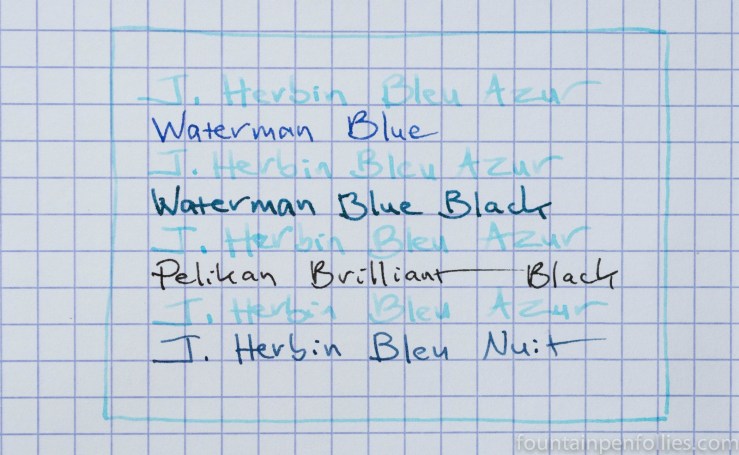 J. Herbin Bleu Azur
Waterman Blue
J. Herbin Bleu Azur
Waterman Blue Black
J. Herbin Bleu Azur
Pelikan Brilliant Black
J. Herbin Bleu Azur
J. Herbin Bleu Nuit
fountainpenfollies.com